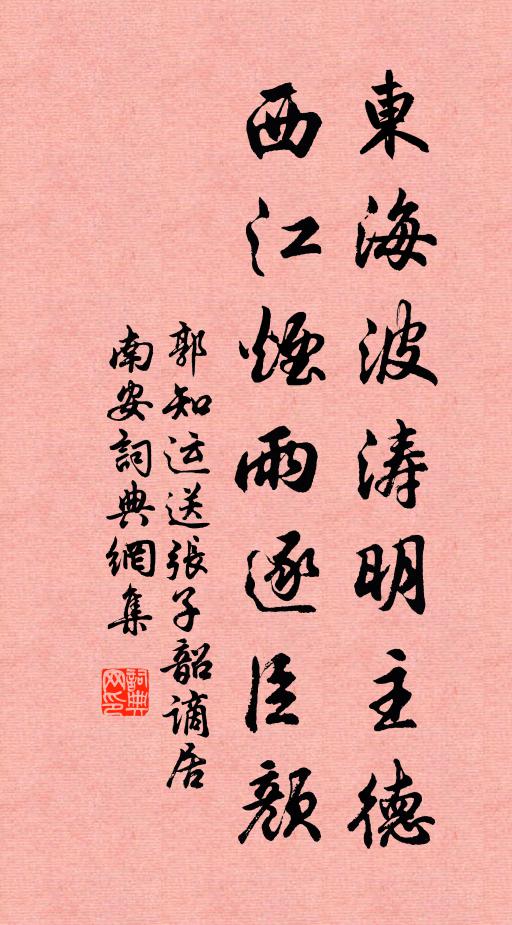 東海波濤明主德
西江煙雨逐臣顏
郭知运送張子韶謫居
南安詞典網集
詞典
网印